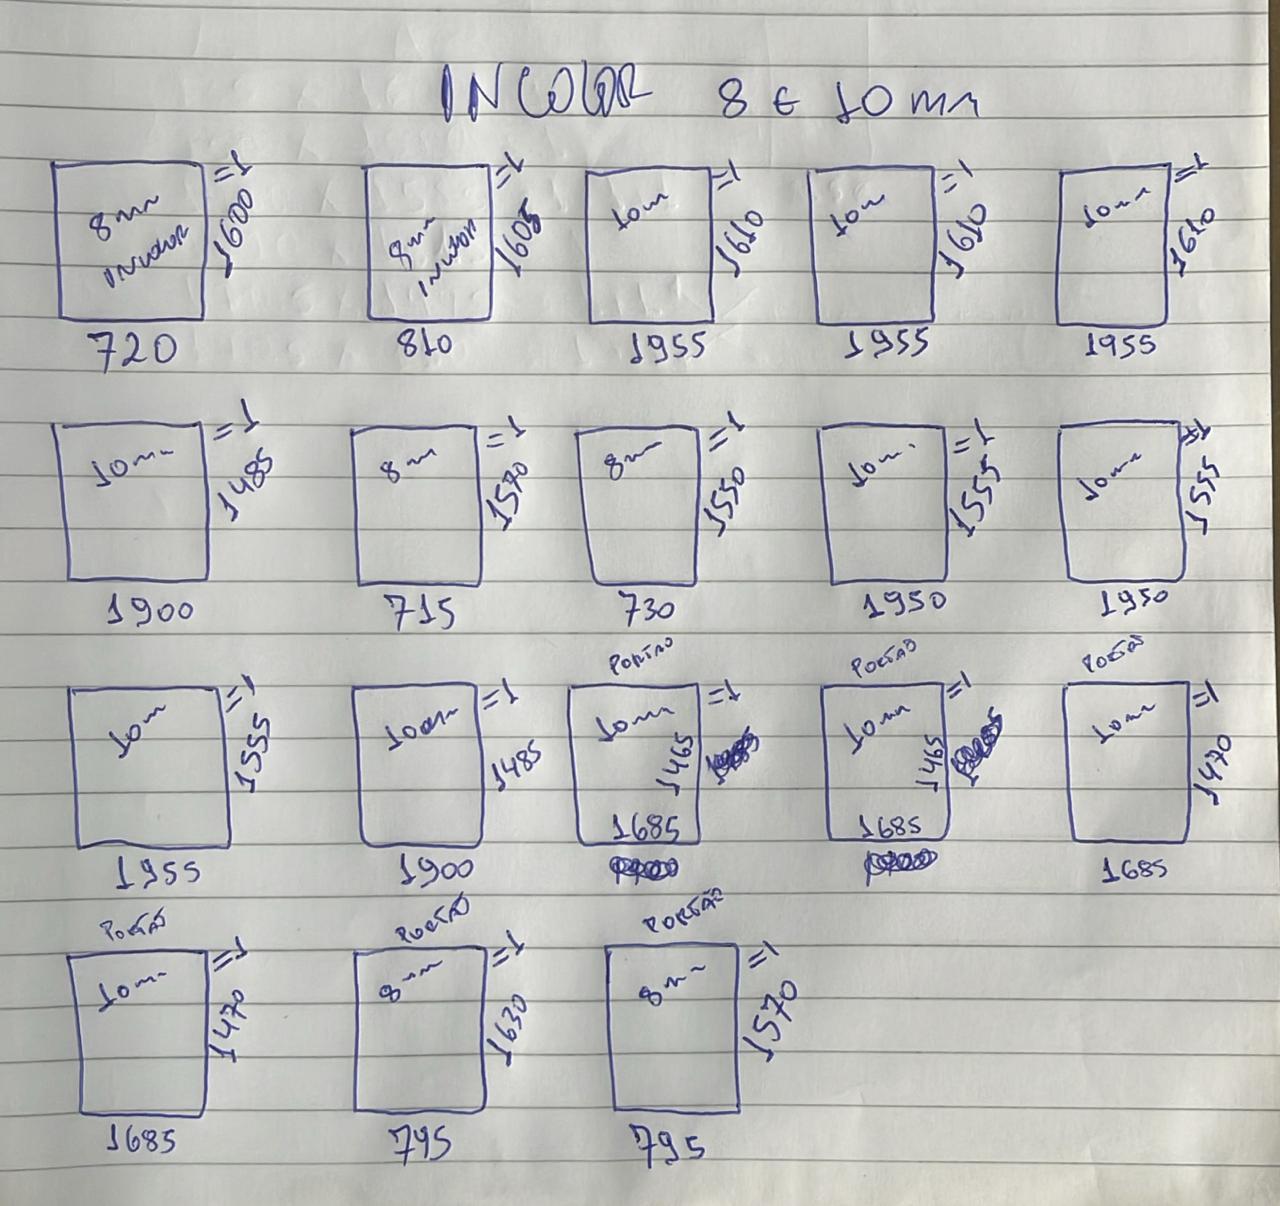 INCOLOR 8 E 10mm
=1 =1 =1 =1 =1
8mm INCOLOR 1600 8mm INCOLOR 1605 10m 1610 10m 1610 10mm 1610
720 810 1955 1955 1955
=1 =1 =1 =1 =1
10mm 1485 8m 1570 8m 1550 10m 1555 10mm 1555
1900 715 730 1950 1950
PORTÃO PORTÃO PORTÃO
=1 =1 =1 =1 =1
10m 1555 10mm 1485 10mm 1465 10mm 1465 10mm 1470
1685 1685
1955 1900 1685
PORTÃO PORTÃO PORTÃO
=1 =1 =1
10mm 1470 8mm 1630 8mm 1570
1685 795 795